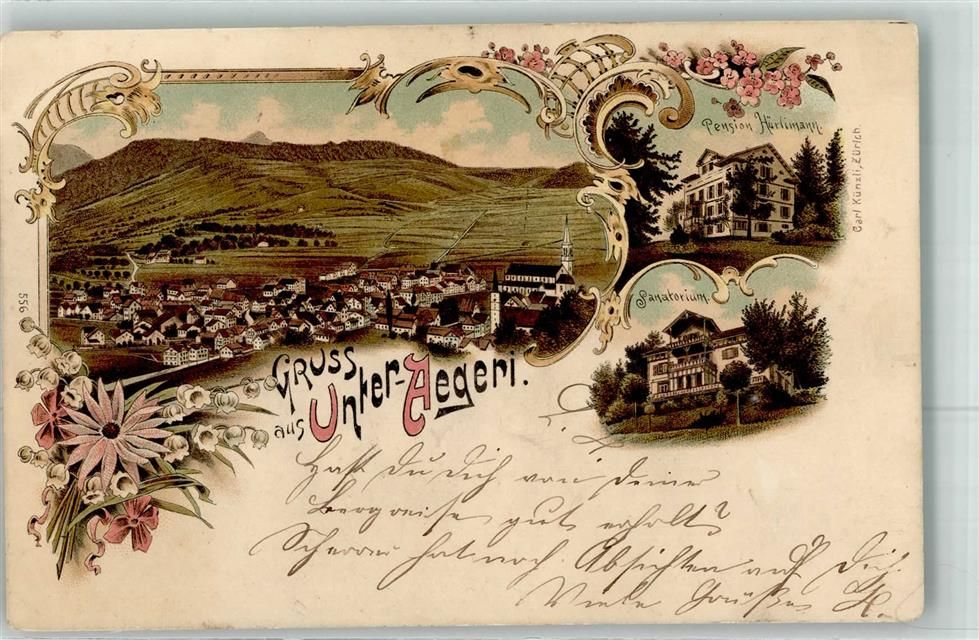 Pension Hürlimann.
Carl Künzli, Zürich.
Sanatorium.
556
Gruss
aus Unter-Aegeri.
Hast du dich von deiner
Bergreise gut erholt?
Scherrer hat noch Absichten auf Dich.
Viele Grüße
oldthing
oldthing